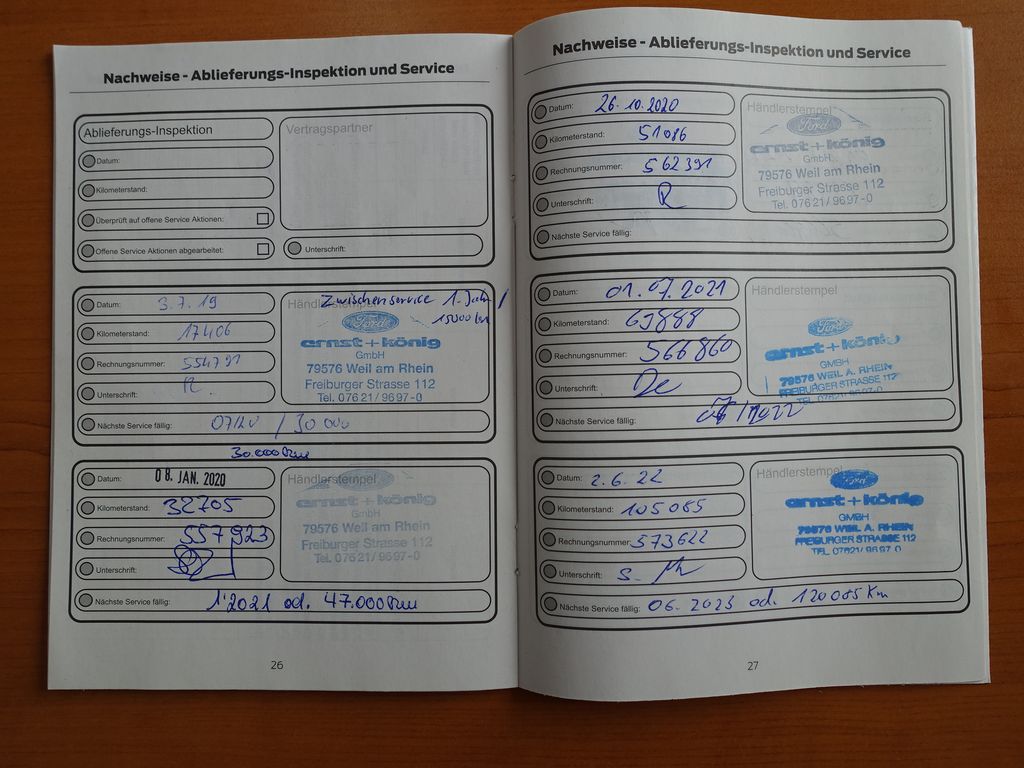 Nachweise - Ablieferungs-Inspektion und Service
Ablieferungs-Inspektion
Vertragspartner
Datum:
Kilometerstand:
Überprüft auf offene Service Aktionen:
Offene Service Aktionen abgearbeitet:
Unterschrift:
Datum: 3.7.19
Kilometerstand: 17406
Rechnungsnummer: 554791
Unterschrift: R.
Nächste Service fällig: 07/20 / 30 000
Händlerstempel
Zwischenservice 1. Jahr /
15000 km
Ford
ernst + könig
GmbH
79576 Weil am Rhein
Freiburger Strasse 112
Tel. 07621/9697-0
30.000 km
Datum: 08. JAN. 2020
Kilometerstand: 32705
Rechnungsnummer: 557923
Unterschrift:
Nächste Service fällig: 1'2021 od. 47.000 km
Händlerstempel
Ford
ernst + könig
GmbH
79576 Weil am Rhein
Freiburger Strasse 112
Tel. 07621/9697-0
26
Nachweise - Ablieferungs-Inspektion und Service
Datum: 26.10.2020
Kilometerstand: 51086
Rechnungsnummer: 562391
Unterschrift: R
Nächste Service fällig:
Händlerstempel
Ford
ernst + könig
GmbH
79576 Weil am Rhein
Freiburger Strasse 112
Tel. 07621/9697-0
Datum: 01.07.2021
Kilometerstand: 69888
Rechnungsnummer: 566860
Unterschrift:
Nächste Service fällig: 07/2022
Händlerstempel
Ford
ernst + könig
GMBH
79576 WEIL A. RHEIN
FREIBURGER STRASSE 112
TEL. 07621/9697-0
Datum: 2.6.22
Kilometerstand: 105085
Rechnungsnummer: 573622
Unterschrift:
Nächste Service fällig: 06.2023 od. 120085 Km
Händlerstempel
Ford
ernst + könig
GMBH
79576 WEIL A. RHEIN
FREIBURGER STRASSE 112
TEL. 07621/9697-0
27